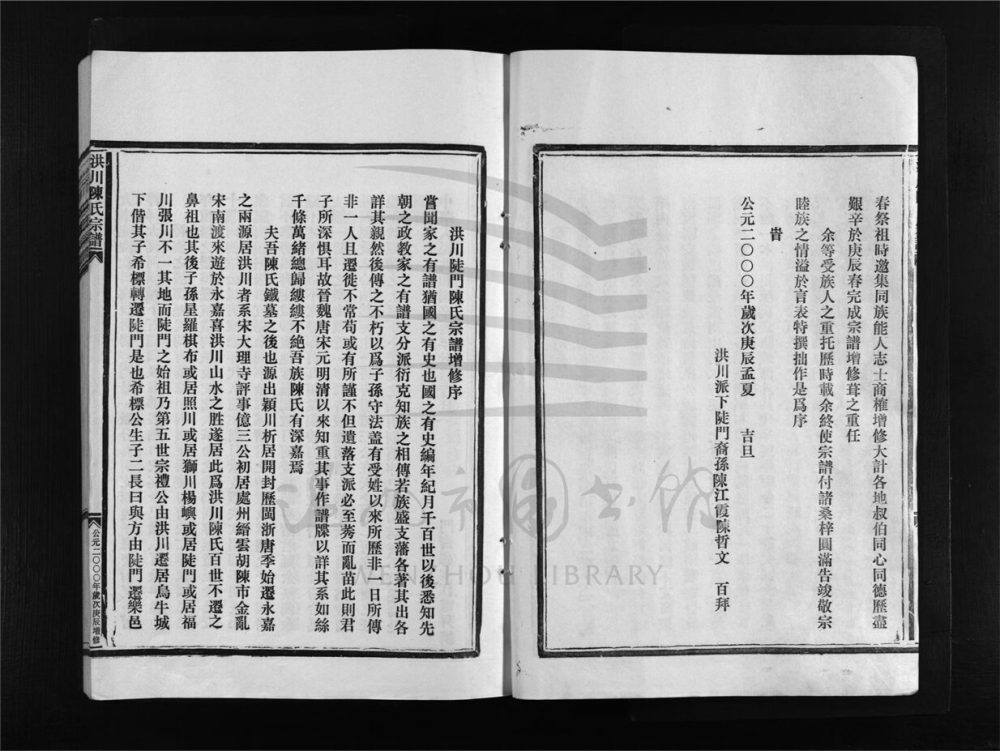 春祭祖時邀集同族能人志士商榷增修大計各地叔伯同心同德歷盡
艱辛於庚辰春完成宗譜增修葺之重任
余等受族人之重托歷時載余終使宗譜付諸桑梓圓滿告竣敬宗
睦族之情溢於言表特撰拙作是爲序
旹
公元二○○○年歲次庚辰孟夏　吉旦
洪川派下陡門裔孫陳江霞陳哲文　百拜
洪川陡門陳氏宗譜增修序
嘗聞家之有譜猶國之有史也國之有史編年紀月千百世以後悉知先
朝之政教家之有譜支分派衍克知族之相傳若族盛支藩各著其出各
詳其親然後傳之不朽以爲子孫守法盖有受姓以來所歷非一日所傳
非一人且遷徙不常苟或有所謹不但遺落支派必至莠而亂苗此則君
子所深惧耳故晉魏唐宋元明清以來知重其事作譜牒以詳其系如絲
千條萬緒總歸縷縷不絕吾族陳氏有深嘉焉
夫吾陳氏鐵墓之後也源出穎川析居開封歷閩浙唐季始遷永嘉
之兩源居洪川者系宋大理寺評事億三公初居處州縉雲胡陳市金亂
宋南渡來遊於永嘉喜洪川山水之胜遂居此爲洪川陳氏百世不遷之
鼻祖也其後子孫星羅棋布或居照川或居獅川楊嶼或居陡門或居福
川張川不一其地而陡門之始祖乃第五世宗禮公由洪川遷居烏牛城
下偕其子希標轉遷陡門是也希標公生子二長曰與方由陡門遷樂邑
洪川陳氏宗譜
公元二○○○年歲次庚辰增修
溫州市圖书館
WENZHOU LIBRARY